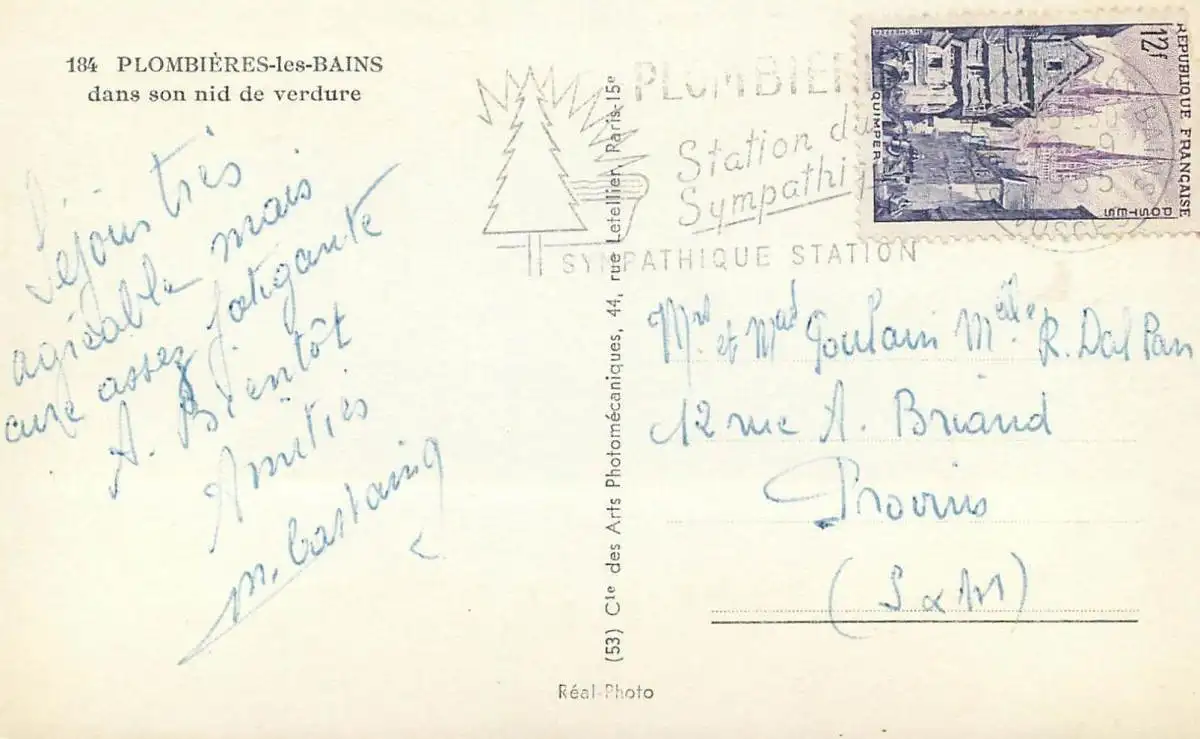 184 PLOMBIÈRES-les-BAINS
dans son nid de verdure
Séjour très
agréable mais
cure assez fatigante
A. Bientôt
Amitiés
M. Castaing
(53) Cie des Arts Photomécaniques, 44, rue Letellier, Paris-15e
Réal-Photo
PLOMBIER
Station du
Sympathi
SYMPATHIQUE STATION
12f
REPUBLIQUE FRANÇAISE
POSTES
QUIMPER
LES BAINS
VOSGES
Mr et Mad Goulain Melle R. Dal Pan
12 rue A. Briand
Provins
(S & M)